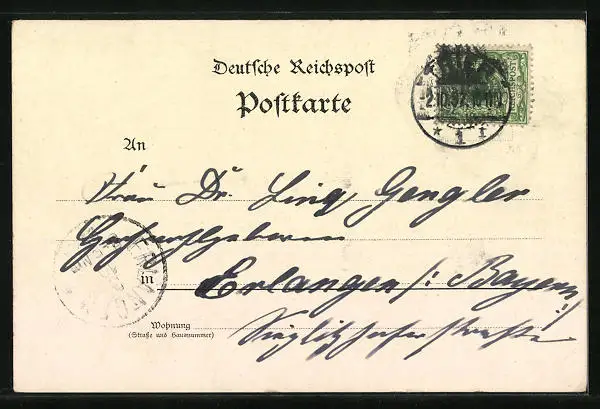 Deutsche Reichspost
Postkarte
An
Frau Dr. Ling Gengler
Hochwohlgeboren
in Erlangen (: Bayern :)
Wohnung
(Straße und Hausnummer)
Sieglitzhoferstraße
2.10.97
* 1 f